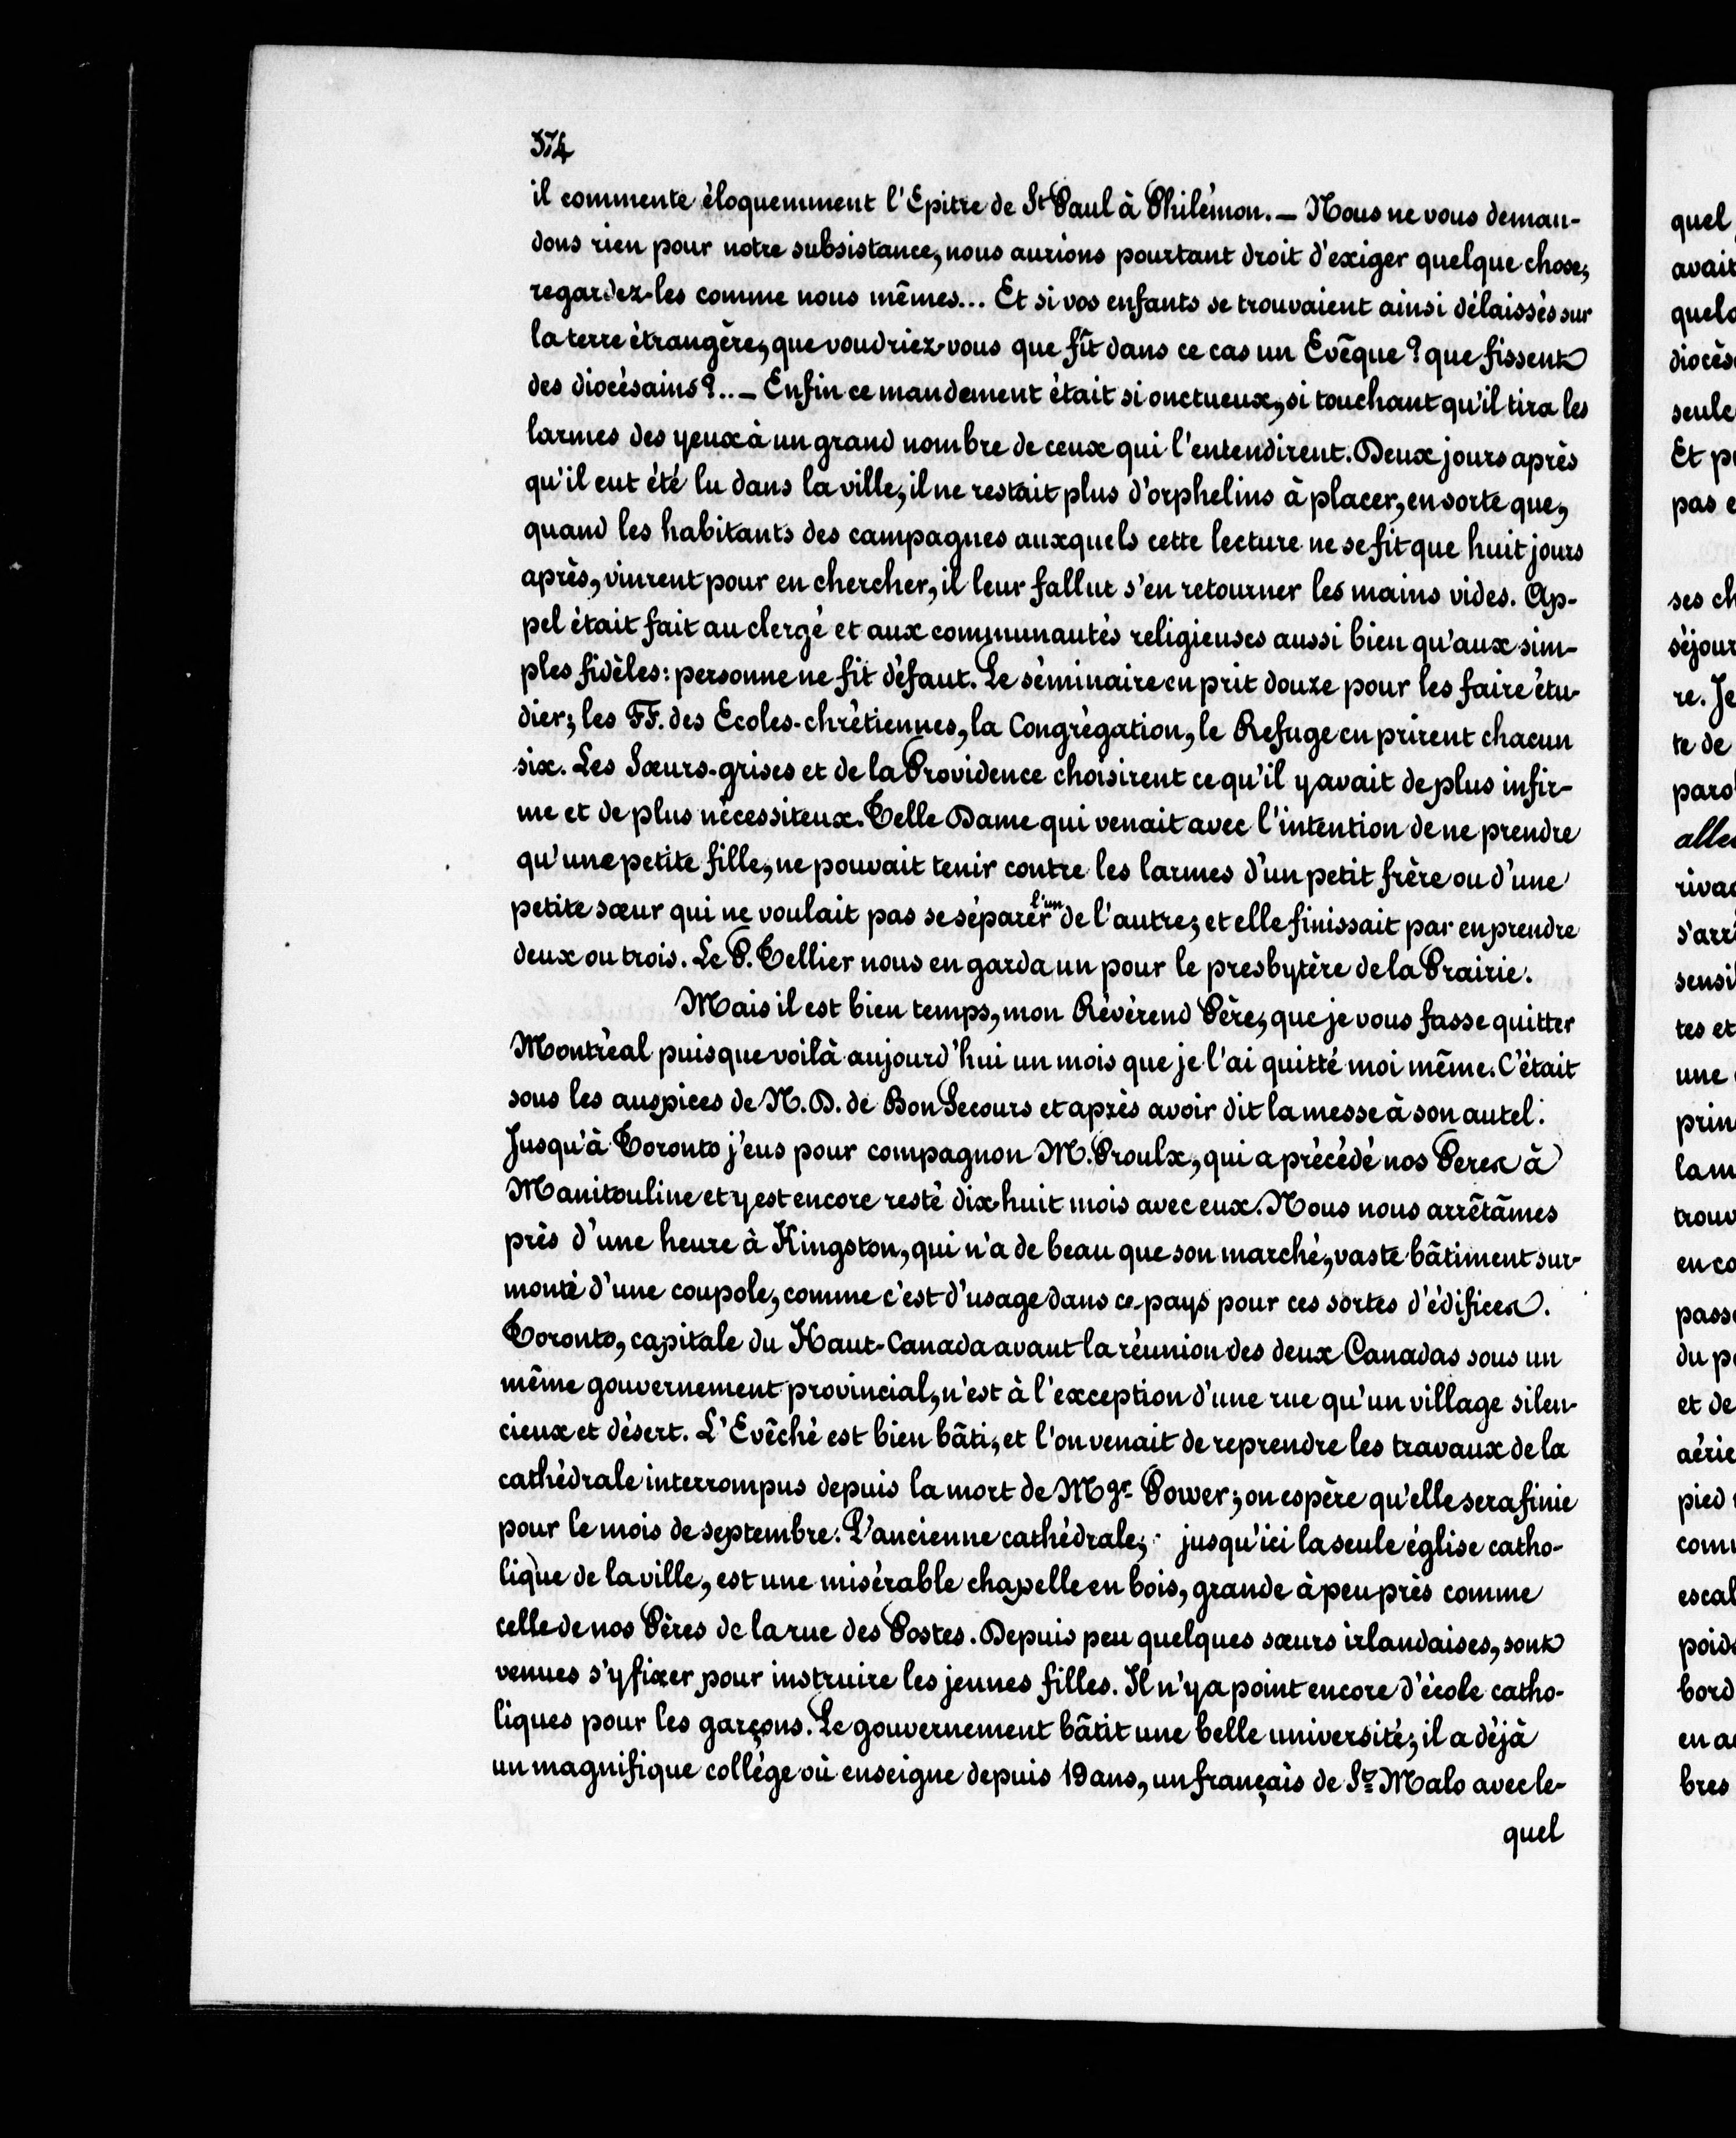 374
il commente éloquemment l'Epitre de St Paul à Philémon. — Nous ne vous deman-
dons rien pour notre subsistance, nous aurions pourtant droit d'exiger quelque chose;
regardez-les comme nous mêmes... Et si vos enfants se trouvaient ainsi délaissés sur
la terre étrangère, que voudriez-vous que fît dans ce cas un Evêque? que fissent
des diocésains?.. — Enfin ce mandement était si onctueux, si touchant qu'il tira les
larmes des yeux à un grand nombre de ceux qui l'entendirent. Deux jours après
qu'il eut été lu dans la ville, il ne restait plus d'orphelins à placer, en sorte que,
quand les habitants des campagnes auxquels cette lecture ne se fit que huit jours
après, vinrent pour en chercher, il leur fallut s'en retourner les mains vides. Ap-
pel était fait au clergé et aux communautés religieuses aussi bien qu'aux sim-
ples fidèles: personne ne fit défaut. Le séminaire en prit douze pour les faire étu-
dier; les FF. des Ecoles-chrétiennes, la Congrégation, le Refuge en prirent chacun
six. Les Sœurs-grises et de la Providence choisirent ce qu'il y avait de plus infir-
me et de plus nécessiteux. Telle Dame qui venait avec l'intention de ne prendre
qu'une petite fille, ne pouvait tenir contre les larmes d'un petit frère ou d'une
petite sœur qui ne voulait pas se séparer l'un de l'autre; et elle finissait par en prendre
deux ou trois. Le P. Tellier nous en garda un pour le presbytère de la Prairie.
Mais il est bien temps, mon Révérend Père, que je vous fasse quitter
Montréal puisque voilà aujourd'hui un mois que je l'ai quitté moi même. C'était
sous les auspices de N. D. de Bon Secours et après avoir dit la messe à son autel.
Jusqu'à Toronto j'eus pour compagnon M. Proulx, qui a précédé nos Peres à
Manitouline et y est encore resté dix huit mois avec eux. Nous nous arrêtâmes
près d'une heure à Kingston, qui n'a de beau que son marché, vaste bâtiment sur-
monté d'une coupole, comme c'est d'usage dans ce pays pour ces sortes d'édifices.
Toronto, capitale du Haut-Canada avant la réunion des deux Canadas sous un
même gouvernement provincial, n'est à l'exception d'une rue qu'un village silen-
cieux et désert. L'Evêché est bien bâti, et l'on venait de reprendre les travaux de la
cathédrale interrompus depuis la mort de Mgr. Power; on espère qu'elle sera finie
pour le mois de septembre. L'ancienne cathédrale, jusqu'ici la seule église catho-
lique de la ville, est une misérable chapelle en bois, grande à peu près comme
celle de nos Pères de la rue des Postes. Depuis peu quelques sœurs irlandaises, sont
venues s'y fixer pour instruire les jeunes filles. Il n'y a point encore d'école catho-
liques pour les garçons. Le gouvernement bâtit une belle université; il a déjà
un magnifique collége où enseigne depuis 19 ans, un français de St Malo avec le-
quel
quel
avait
diocès
seule
Et
pas
ses
séjour
re. Je
te de
s'arr
tes et
une
trouv
du
et de
pied
bord
bres